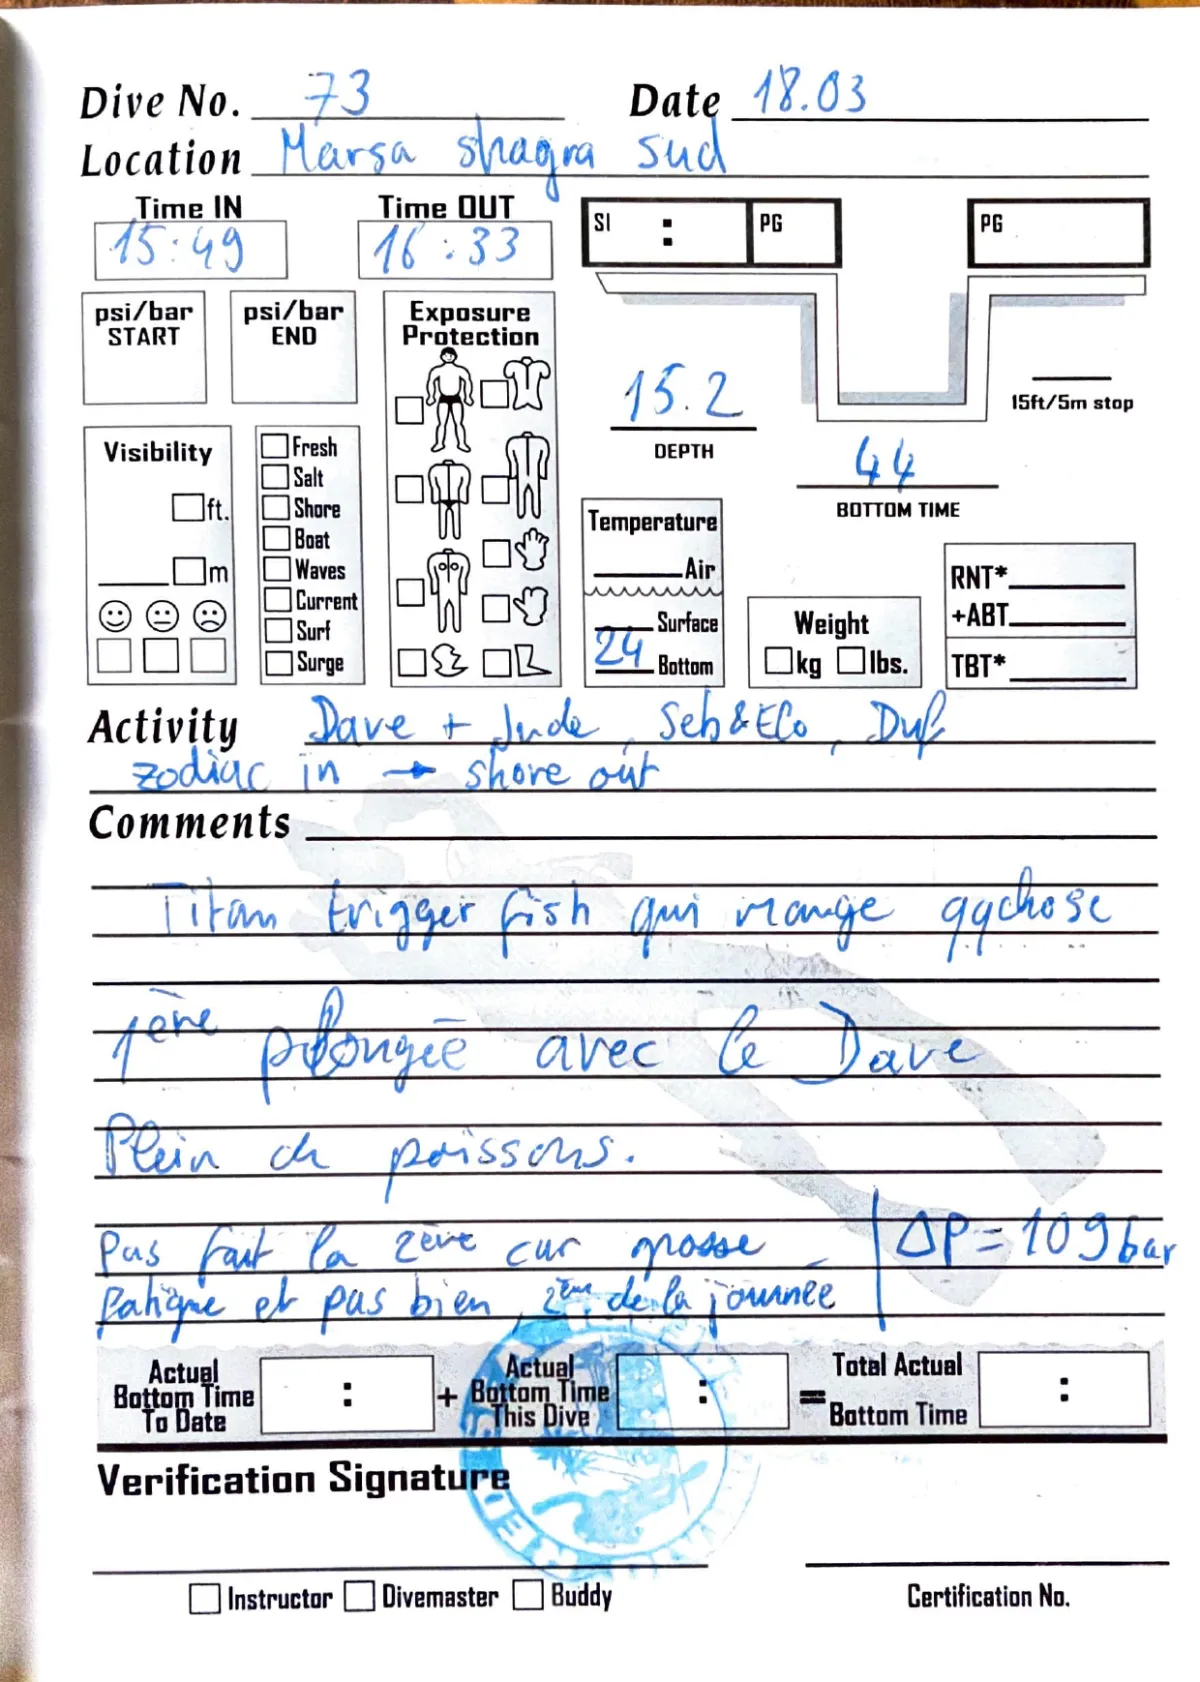 Dive No. 73 Date 18.03
Location Marsa shagra sud
Time IN Time OUT
15:49 16:33
SI : PG PG
psi/bar START psi/bar END Exposure Protection
15.2
DEPTH
15ft/5m stop
44
BOTTOM TIME
Visibility
ft.
m
Fresh
Salt
Shore
Boat
Waves
Current
Surf
Surge
Temperature
Air
Surface
24 Bottom
Weight
kg lbs.
RNT*
+ABT
TBT*
Activity Dave + Jude, Seb & Elo, Duf
zodiac in → shore out
Comments
Titan trigger fish qui mange qqchose
1ère plongée avec le Dave
Plein de poissons.
Pas fait la 2ère car grosse
fatigue et pas bien, 2ème de la journée
ΔP = 109 bar
Actual Bottom Time To Date : + Actual Bottom Time This Dive : = Total Actual Bottom Time :
Verification Signature
Instructor Divemaster Buddy Certification No.